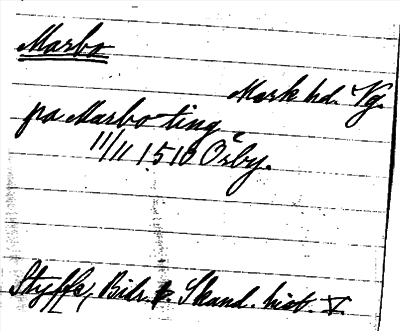 Marbo
Mark hd. Vg.
pa Marbo ting
11/11 1510 Örby.
Styffe, Bidr. t. Skand. hist. V.